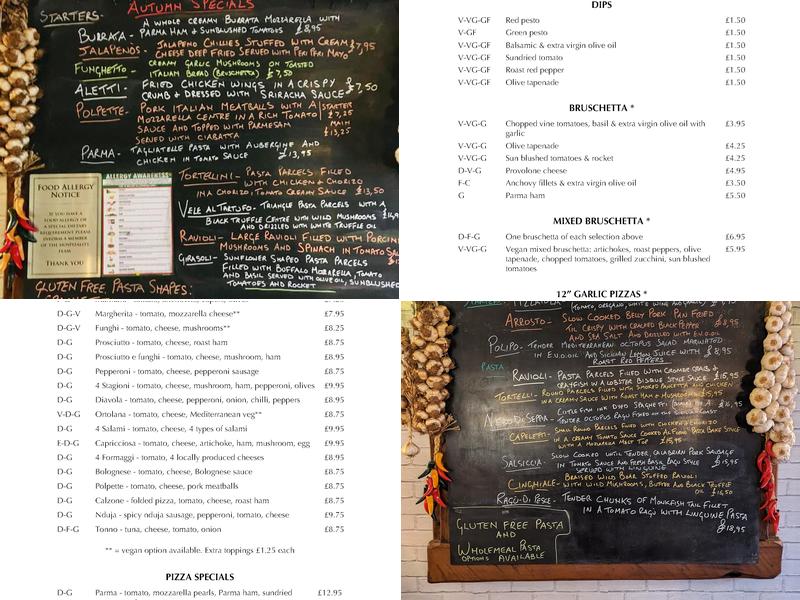 AUTUMN SPECIALS
STARTERS:
BURRATA - A WHOLE CREAMY BURRATA MOZZARELLA WITH
PARMA HAM & SUNBLUSHED TOMATOES £8,95
JALAPENOS - JALAPENO CHILLIES STUFFED WITH CREAM £7,95
CHEESE DEEP FRIED SERVED WITH PERI PERI MAYO
FUNGHETTO - CREAMY GARLIC MUSHROOMS ON TOASTED
ITALIAN BREAD (BRUSCHETTA) £7,50
ALETTI - FRIED CHICKEN WINGS IN A CRISPY £7,50
CRUMB & DRESSED WITH SRIRACHA SAUCE
POLPETTE - PORK ITALIAN MEATBALLS WITH A STARTER
MOZZARELLA CENTRE IN A RICH TOMATO £7,25
SAUCE AND TOPPED WITH PARMESAN MAIN
SERVED WITH CIABATTA £13,25
PARMA - TAGLIATELLE PASTA WITH AUBERGINE AND
CHICKEN IN TOMATO SAUCE £13,95
TORTELLINI - PASTA PARCELS FILLED
WITH CHICKEN & CHORIZO
IN A CHORIZO, TOMATO CREAMY SAUCE £13,50
VELE AL TARTUFO - TRIANGLE PASTA PARCELS WITH A
BLACK TRUFFLE CENTRE WITH WILD MUSHROOMS
AND DRIZZLED WITH WHITE TRUFFLE OIL
RAVIOLI - LARGE RAVIOLI FILLED WITH PORCINI
MUSHROOMS AND SPINACH IN TOMATO
GIRASOLI - SUNFLOWER SHAPED PASTA PARCELS
FILLED WITH BUFFALO MOZZARELLA, TOMATO
AND BASIL SERVED WITH OLIVE OIL, SUNBLUSHED
TOMATOES AND ROCKET
GLUTEN FREE PASTA SHAPES:
FOOD ALLERGY
NOTICE
IF YOU HAVE A
FOOD ALLERGY OR
A SPECIAL DIETARY
REQUIREMENT PLEASE
INFORM A MEMBER
OF THE HOSPITALITY
TEAM
THANK YOU
ALLERGY AWARENESS
DIPS
V-VG-GF Red pesto £1.50
V-GF Green pesto £1.50
V-VG-GF Balsamic & extra virgin olive oil £1.50
V-VG-GF Sundried tomato £1.50
V-VG-GF Roast red pepper £1.50
V-VG-GF Olive tapenade £1.50
BRUSCHETTA *
V-VG-G Chopped vine tomatoes, basil & extra virgin olive oil with £3.95
garlic
V-VG-G Olive tapenade £4.25
V-VG-G Sun blushed tomatoes & rocket £4.25
D-V-G Provolone cheese £4.95
F-G Anchovy fillets & extra virgin olive oil £3.50
G Parma ham £5.50
MIXED BRUSCHETTA *
D-F-G One bruschetta of each selection above £6.95
V-VG-G Vegan mixed bruschetta; artichokes, roast peppers, olive £5.95
tapenade, chopped tomatoes, grilled zucchini, sun blushed
tomatoes
12" GARLIC PIZZAS *
D-G-V Margherita - tomato, mozzarella cheese** £7.95
D-G-V Funghi - tomato, cheese, mushrooms** £8.25
D-G Prosciutto - tomato, cheese, roast ham £8.75
D-G Prosciutto e funghi - tomato, cheese, mushroom, ham £8.95
D-G Pepperoni - tomato, cheese, pepperoni sausage £8.75
D-G 4 Stagioni - tomato, cheese, mushroom, ham, pepperoni, olives £9.95
D-G Diavola - tomato, cheese, pepperoni, onion, chilli, peppers £8.95
V-D-G Ortolana - tomato, cheese, Mediterranean veg** £8.75
D-G 4 Salami - tomato, cheese, 4 types of salami £9.95
E-D-G Capricciosa - tomato, cheese, artichoke, ham, mushroom, egg £9.95
D-G 4 Formaggi - tomato, 4 locally produced cheeses £8.95
D-G Bolognese - tomato, cheese, Bolognese sauce £8.75
D-G Polpette - tomato, cheese, pork meatballs £8.75
D-G Calzone - folded pizza, tomato, cheese, roast ham £8.75
D-G Nduja - spicy nduja sausage, pepperoni, tomato, cheese £9.75
D-F-G Tonno - tuna, cheese, tomato, onion £8.75
** = vegan option available. Extra toppings £1.25 each
PIZZA SPECIALS
D-G Parma - tomato, mozzarella pearls, Parma ham, sundried £12.95
ARROSTO - SLOW COOKED BELLY PORK PAN FRIED
TIL CRISPY WITH CRACKED BLACK PEPPER
AND SEA SALT AND DRIZZLED WITH E.V.O.OIL £8,95
POLIPO - TENDER MEDITERRANEAN OCTOPUS SALAD MARINATED
IN E.V.O.OIL AND SICILIAN LEMON JUICE WITH £8,95
ROAST RED PEPPERS
PASTA
RAVIOLI - PASTA PARCELS FILLED WITH CROMER CRAB &
CRAYFISH IN A LOBSTER BISQUE STYLE SAUCE £15,95
TORTELLI - ROUND PARCELS FILLED WITH SMOKED PANCETTA AND CHICKEN
IN A CREAMY SAUCE WITH ROAST HAM & MUSHROOMS £15,95
NERO DI SEPPIA - CUTTLEFISH INK DYED SPAGHETTI
TENDER OCTOPUS RAGU
CAPELETTI - SMALL ROUND PARCELS FILLED WITH CHICKEN & CHORIZO
IN A CREAMY TOMATO SAUCE COOKED AL FORNO BAKE STYLE
WITH A MOZZARELLA MELT TOP £15,95
SALSICCIA - SLOW COOKED UNTIL TENDER, CALABRIAN PORK SAUSAGE
IN TOMATO SAUCE AND FRESH BASIL RAGU STYLE £15,95
SERVED WITH LINGUINE
CINGHIALE - BRAISED WILD BOAR STUFFED RAVIOLI
WITH WILD MUSHROOMS, BUTTER AND BLACK TRUFFLE
OIL £16,50
RAGU DI PESCE - TENDER CHUNKS OF MONKFISH TAIL FILLET
IN A TOMATO RAGU WITH LINGUINE PASTA
£18,95
GLUTEN FREE PASTA
AND
WHOLEMEAL PASTA
OPTIONS AVAILABLE